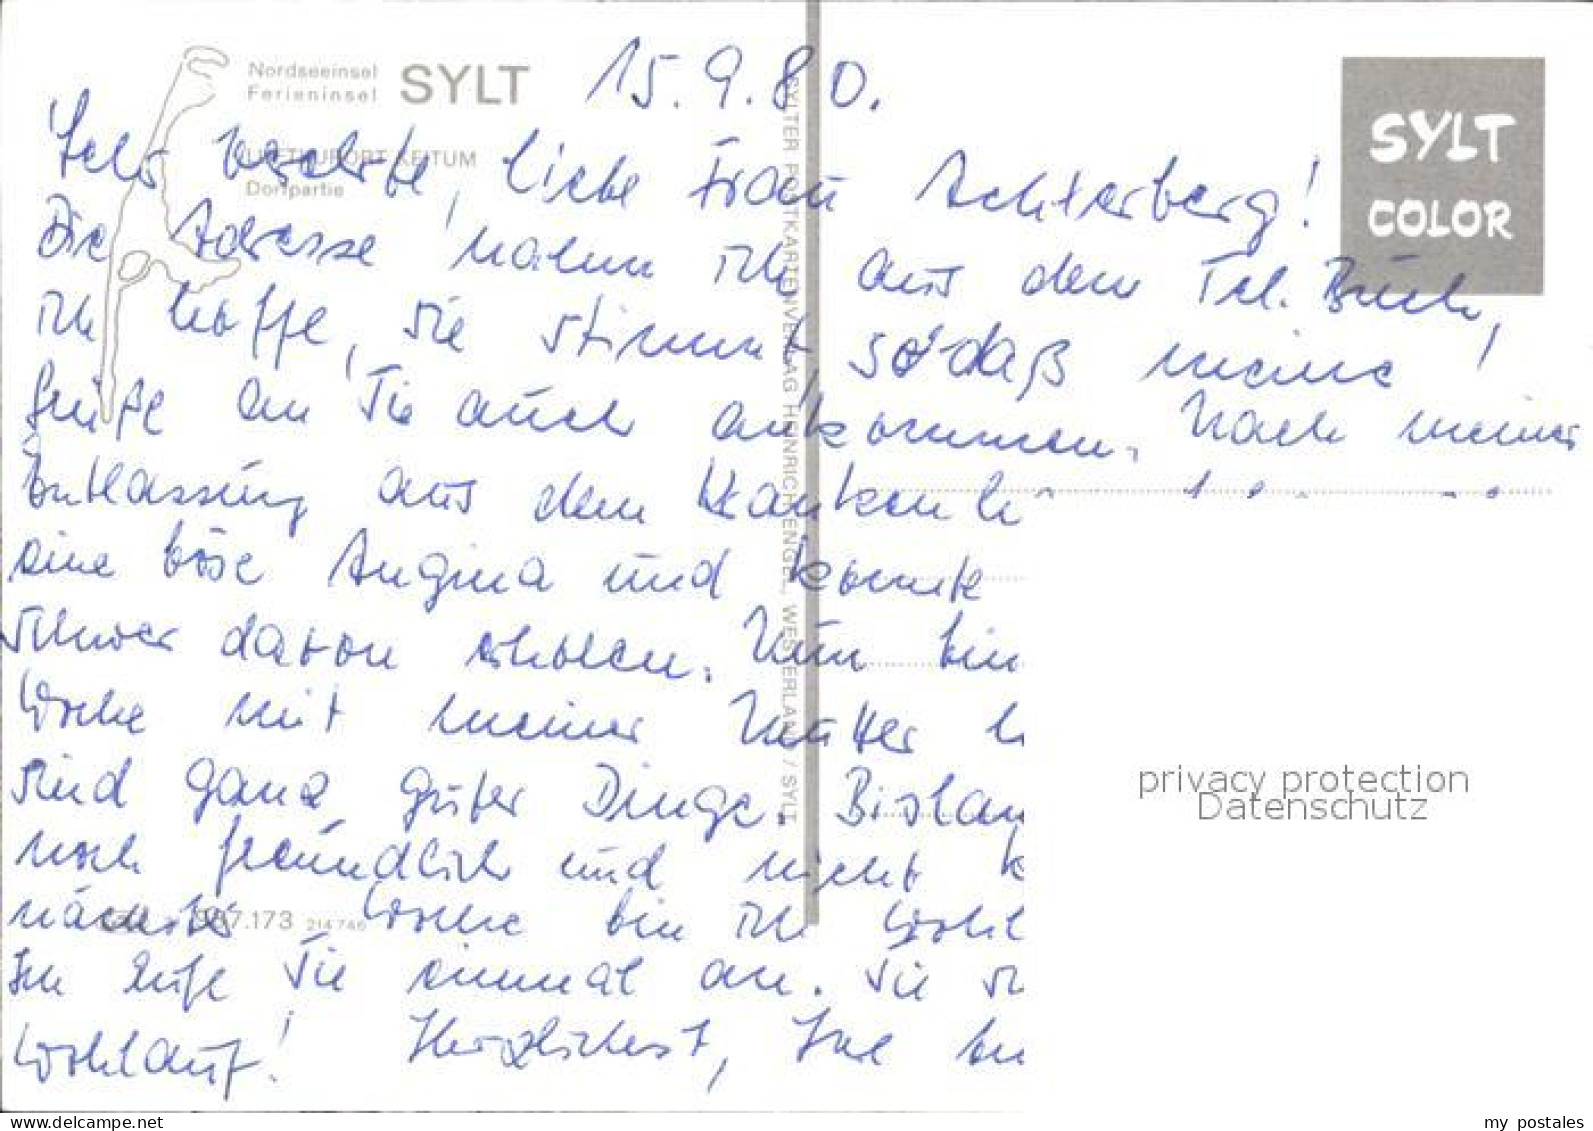 Nordseeinsel
Ferieninsel SYLT
LUFTKURORT KEITUM
Dorfpartie
15.9.80.
SYLT
COLOR
Sehr verehrte, liebe Frau Achterberg!
Die Adresse nahm ich aus dem Tel. Buch,
ich hoffe, sie stimmt, sodaß meine
Grüße an Sie auch ankommen. Nach meiner
Entlassung aus dem Krankenh
eine böse Angina und konnte
schwer davon erholen. Nun bin
Woche mit meiner Mutter h
sind ganz guter Dinge. Bislang
noch freundlich und nicht k
nächster Woche bin ich wohl
Ich rufe Sie einmal an. Sie si
wohlauf! Herzlichst, Ihre
SYLTER POSTKARTENVERLAG HEINRICH ENGEL, WESTERLAND / SYLT
987.173 214 746
privacy protection
Datenschutz
www.delcampe.net
my postales